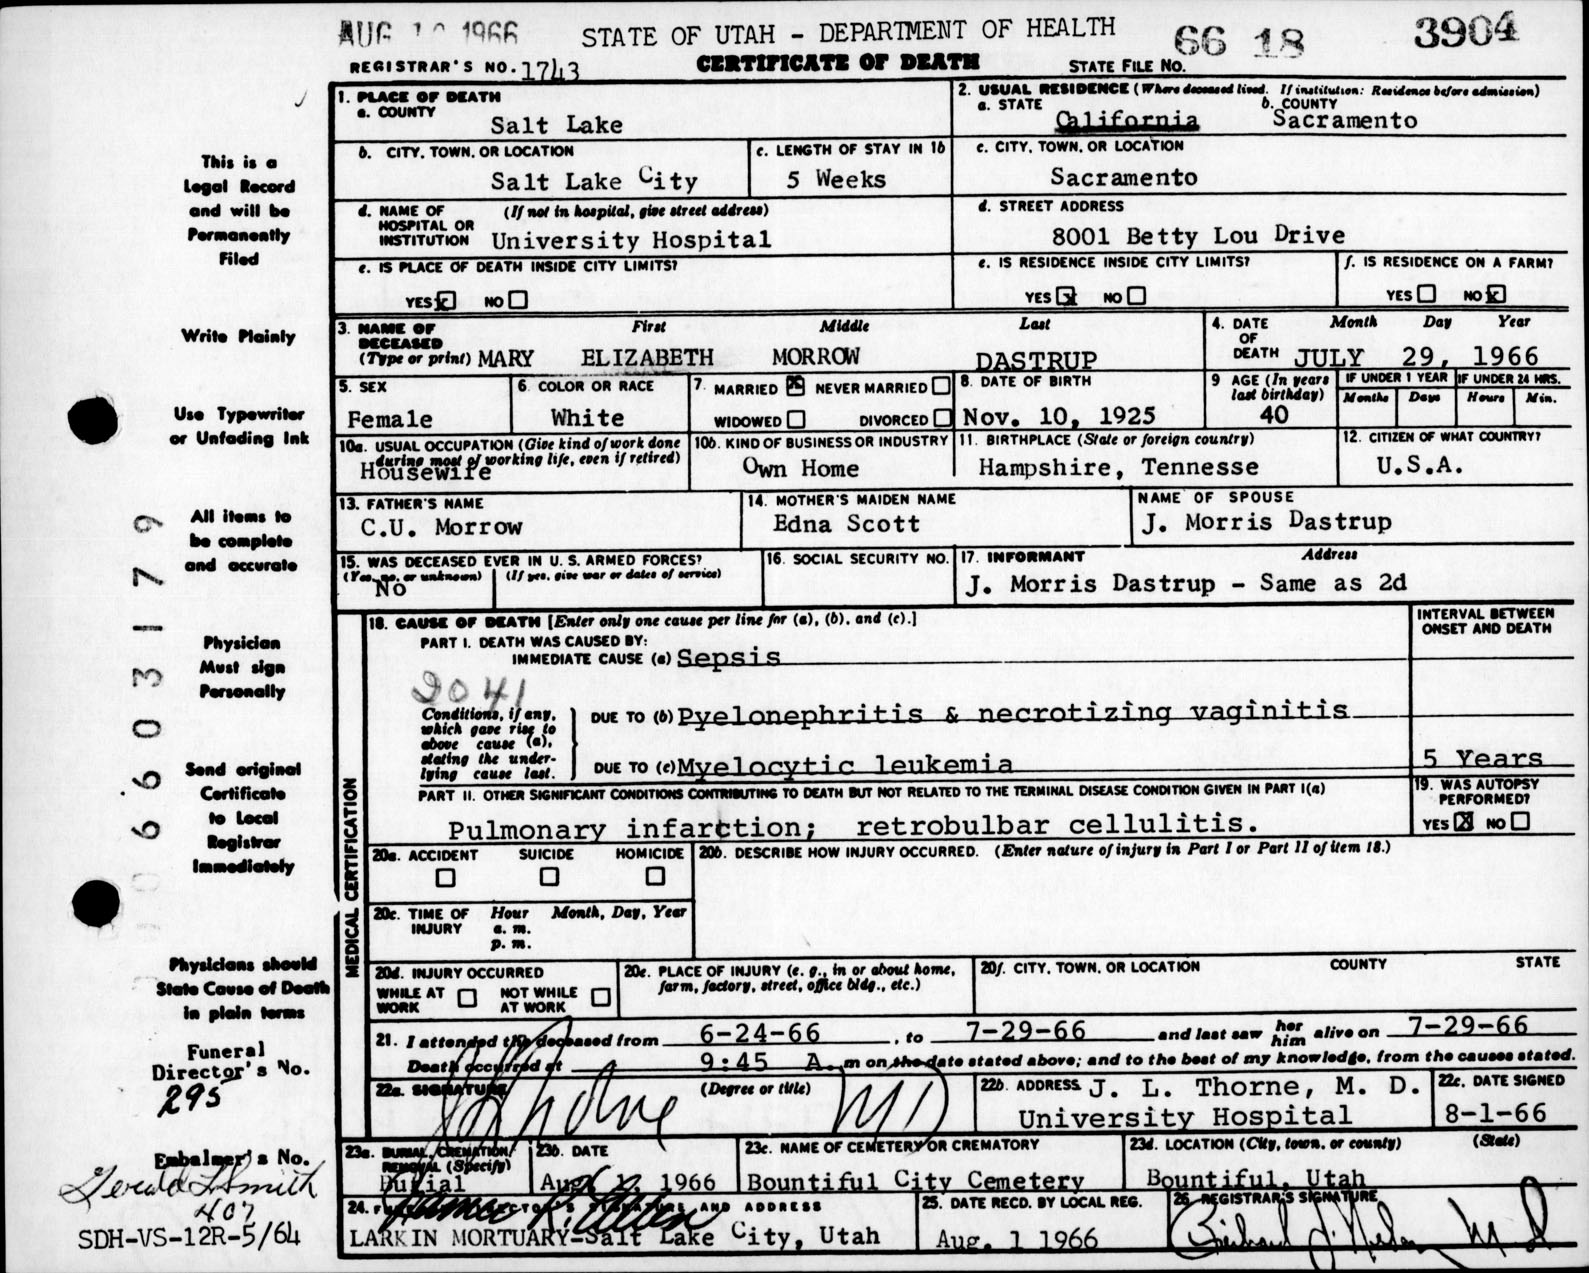 AUG 1966 STATE OF UTAH - DEPARTMENT OF HEALTH 66 18 3904
REGISTRAR'S NO. 1743 CERTIFICATE OF DEATH STATE FILE NO.
1. PLACE OF DEATH
a. COUNTY
Salt Lake
2. USUAL RESIDENCE (Where deceased lived. If institution: Residence before admission)
a. STATE b. COUNTY
California Sacramento
b. CITY, TOWN, OR LOCATION
Salt Lake City
c. LENGTH OF STAY IN 1b
5 Weeks
c. CITY, TOWN, OR LOCATION
Sacramento
d. NAME OF HOSPITAL OR INSTITUTION (If not in hospital, give street address)
University Hospital
d. STREET ADDRESS
8001 Betty Lou Drive
e. IS PLACE OF DEATH INSIDE CITY LIMITS?
YES x NO
e. IS RESIDENCE INSIDE CITY LIMITS?
YES x NO
f. IS RESIDENCE ON A FARM?
YES NO x
3. NAME OF DECEASED (Type or print) First Middle Last
MARY ELIZABETH MORROW DASTRUP
4. DATE OF DEATH Month Day Year
JULY 29, 1966
5. SEX
Female
6. COLOR OR RACE
White
7. MARRIED x NEVER MARRIED
WIDOWED DIVORCED
8. DATE OF BIRTH
Nov. 10, 1925
9 AGE (In years last birthday)
40
IF UNDER 1 YEAR
Months Days
IF UNDER 24 HRS.
Hours Min.
10a. USUAL OCCUPATION (Give kind of work done during most of working life, even if retired)
Housewife
10b. KIND OF BUSINESS OR INDUSTRY
Own Home
11. BIRTHPLACE (State or foreign country)
Hampshire, Tennesse
12. CITIZEN OF WHAT COUNTRY?
U.S.A.
13. FATHER'S NAME
C.U. Morrow
14. MOTHER'S MAIDEN NAME
Edna Scott
NAME OF SPOUSE
J. Morris Dastrup
15. WAS DECEASED EVER IN U. S. ARMED FORCES?
(Yes, no, or unknown) (If yes, give war or dates of service)
No
16. SOCIAL SECURITY NO.
17. INFORMANT Address
J. Morris Dastrup - Same as 2d
MEDICAL CERTIFICATION
18. CAUSE OF DEATH [Enter only one cause per line for (a), (b), and (c).]
INTERVAL BETWEEN ONSET AND DEATH
PART I. DEATH WAS CAUSED BY:
IMMEDIATE CAUSE (a) Sepsis
2041
Conditions, if any, which gave rise to above cause (a), stating the underlying cause last.
DUE TO (b) Pyelonephritis & necrotizing vaginitis
DUE TO (c) Myelocytic leukemia
5 Years
PART II. OTHER SIGNIFICANT CONDITIONS CONTRIBUTING TO DEATH BUT NOT RELATED TO THE TERMINAL DISEASE CONDITION GIVEN IN PART I(a)
Pulmonary infarction; retrobulbar cellulitis.
19. WAS AUTOPSY PERFORMED?
YES X NO
20a. ACCIDENT SUICIDE HOMICIDE
20b. DESCRIBE HOW INJURY OCCURRED. (Enter nature of injury in Part I or Part II of item 18.)
20c. TIME OF INJURY Hour Month, Day, Year
a. m.
p. m.
20d. INJURY OCCURRED
WHILE AT WORK NOT WHILE AT WORK
20e. PLACE OF INJURY (e. g., in or about home, farm, factory, street, office bldg., etc.)
20f. CITY, TOWN, OR LOCATION COUNTY STATE
21. I attended the deceased from 6-24-66, to 7-29-66 and last saw her him alive on 7-29-66
Death occurred at 9:45 A. m on the date stated above; and to the best of my knowledge, from the causes stated.
22a. SIGNATURE (Degree or title)
J L Thorne MD
22b. ADDRESS J. L. Thorne, M. D.
University Hospital
22c. DATE SIGNED
8-1-66
23a. BURIAL, CREMATION, REMOVAL (Specify)
Burial
23b. DATE
Aug 1966
23c. NAME OF CEMETERY OR CREMATORY
Bountiful City Cemetery
23d. LOCATION (City, town, or county) (State)
Bountiful, Utah
24. FUNERAL DIRECTOR'S SIGNATURE AND ADDRESS
LARKIN MORTUARY-Salt Lake City, Utah
25. DATE RECD. BY LOCAL REG.
Aug. 1 1966
26. REGISTRAR'S SIGNATURE
This is a
Legal Record
and will be
Permanently
Filed
Write Plainly
Use Typewriter
or Unfading Ink
All items to
be complete
and accurate
Physician
Must sign
Personally
Send original
Certificate
to Local
Registrar
Immediately
Physicians should
State Cause of Death
in plain terms
Funeral
Director's No.
295
Embalmer's No.
Gerald L Smith
407
SDH-VS-12R-5/64
6603179